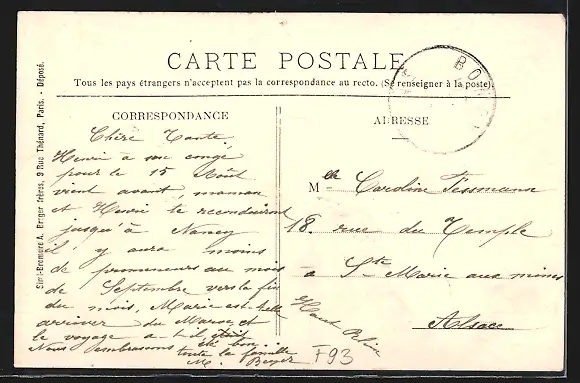 CARTE POSTALE
Tous les pays étrangers n'acceptent pas la correspondance au recto. (Se renseigner à la poste)
CORRESPONDANCE
Chère Tante,
Henri à son congé
pour le 15 Août
vient avant, maman
et Henri te reconduiront
jusqu'à Nancy
il y aura moins
de promeneurs au mois
de Septembre vers la fin
du mois, Marie est-elle
arriver du Maroc, et
le voyage a-t-il été bon.
Nous embrassons toute la famille
M. Beyer
ADRESSE
Melle Caroline Tessmann
18. rue du Temple
à Ste Marie aux mines
Haut Rhin
Alsace
F93
BO
Simi-Bromure A. Breger frères, 9 Rue Thénard, Paris. - Déposé.